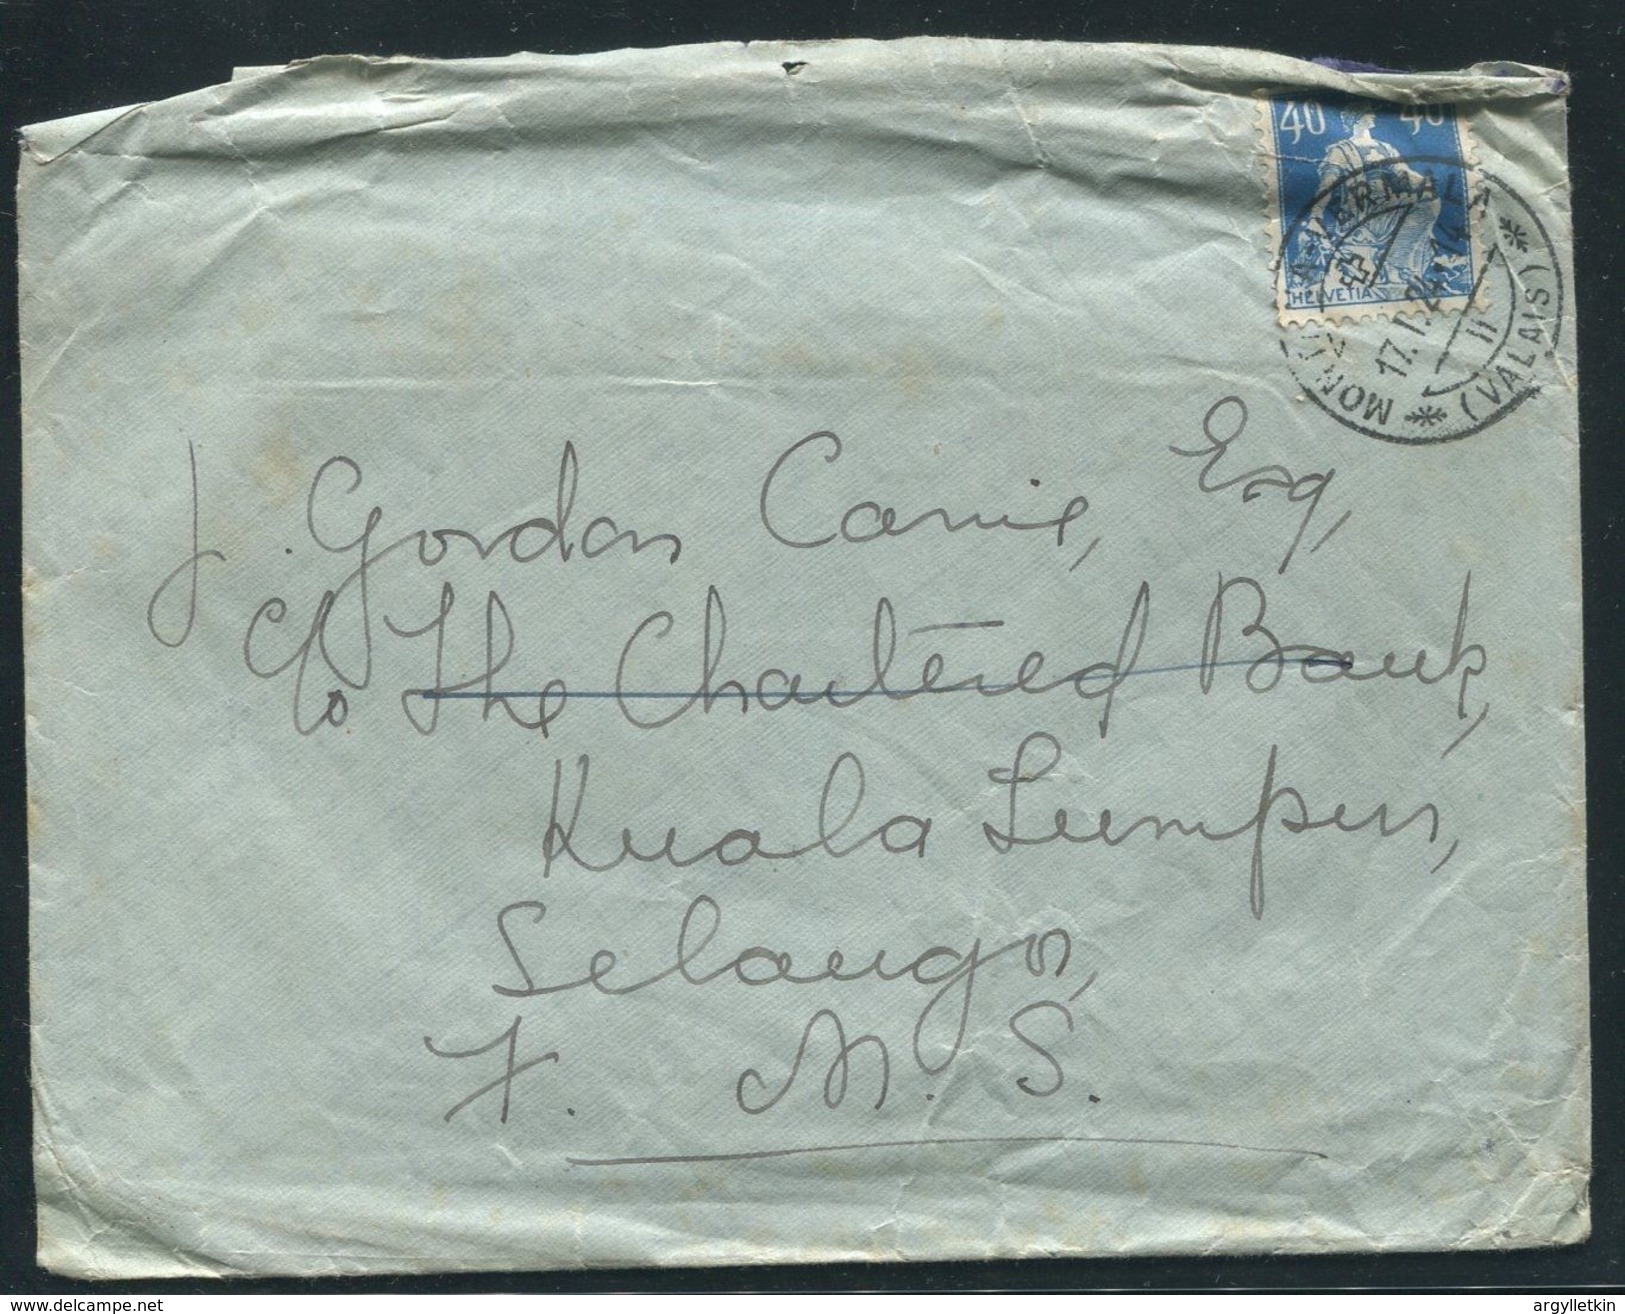 40 40
HELVETIA
MONTANA-VERMALA
17. II. 24. 14
II
(VALAIS)
J. Gordon Carnie, Esq,
c/o The Chartered Bank,
Kuala Lumpur,
Selangor,
F. M. S.
www.delcampe.net
argylletkin